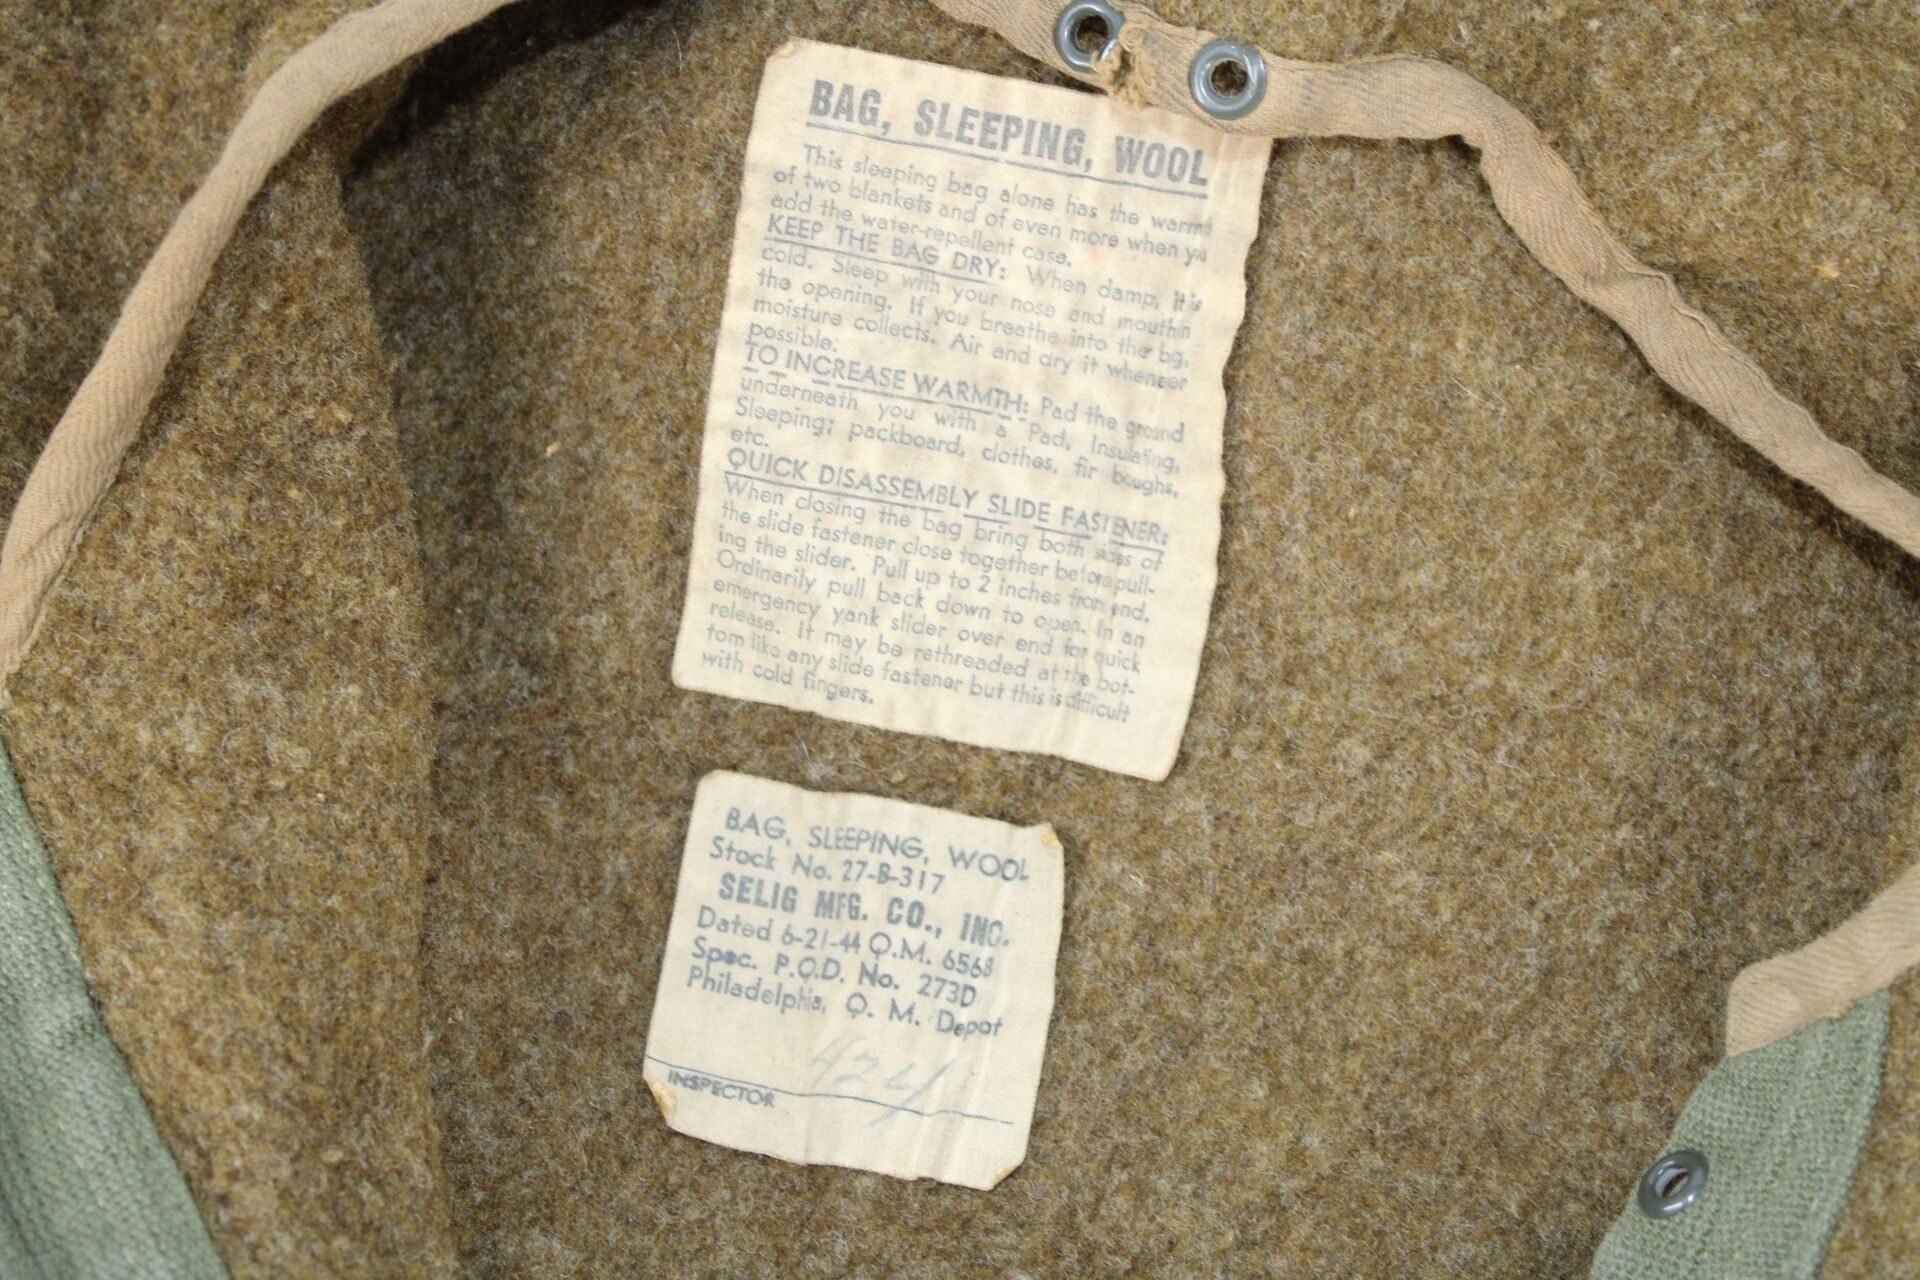 BAG, SLEEPING, WOOL
This sleeping bag alone has the warmt
of two blankets and of even more when yu
add the water-repellent case.
KEEP THE BAG DRY: When damp, it is
cold. Sleep with your nose and mouth in
the opening. If you breathe into the bg,
moisture collects. Air and dry it when
possible.
TO INCREASE WARMTH: Pad the ground
underneath you with a Pad, Insulating,
Sleeping; packboard, clothes, fir boughs,
etc.
QUICK DISASSEMBLY SLIDE FASTENER:
When closing the bag bring both sides of
the slide fastener close together before pull-
ing the slider. Pull up to 2 inches from end.
Ordinarily pull back down to open. In an
emergency yank slider over end for quick
release. It may be rethreaded at the bot-
tom like any slide fastener but this is difficult
with cold fingers.
BAG, SLEEPING, WOOL
Stock No. 27-B-317
SELIG MFG. CO., INC.
Dated 6-21-44 Q.M. 6568
Spec. P.Q.D. No. 273D
Philadelphia, Q. M. Depot
424
INSPECTOR